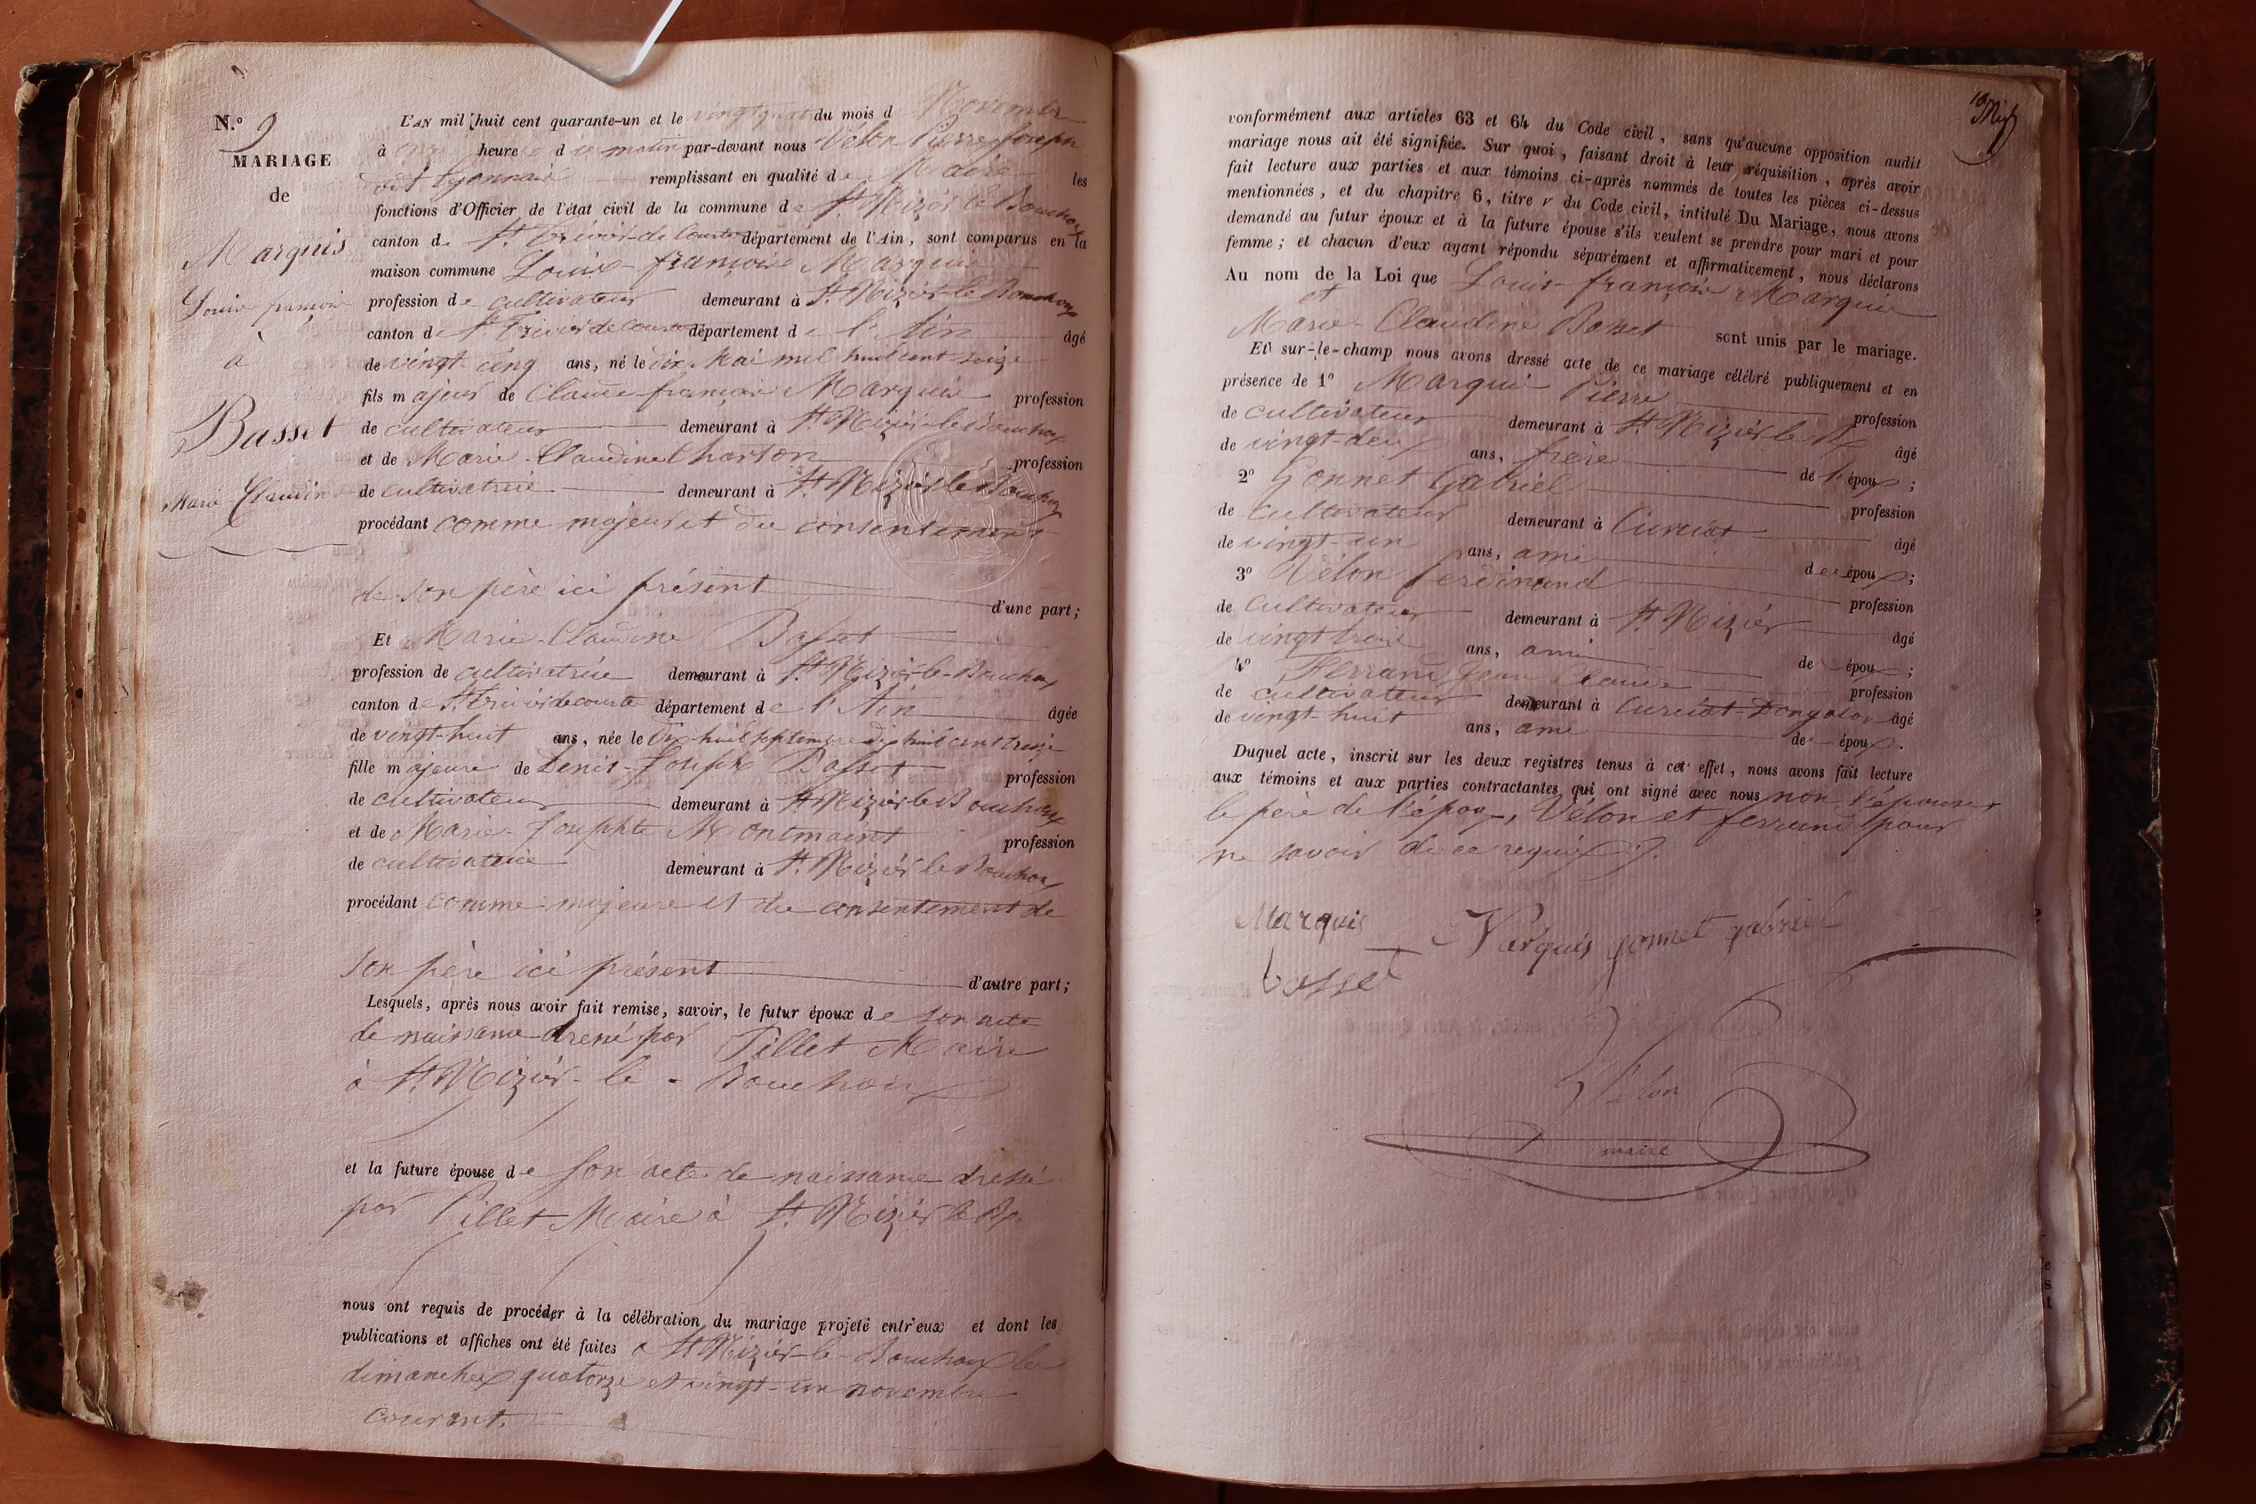 N.º 9
MARIAGE
de
Marquis
Louis françois
à
Basset
Marie Claudine
L'AN mil huit cent quarante-un et le vingt quatre du mois d Novembre
à onze heure d u matin par-devant nous Vélon Pierre Joseph
dit Lyonnais remplissant en qualité de Maire les
fonctions d'Officier de l'état civil de la commune de St. Nizier le Bouchoux
canton de St. Trivier de Courtes département de l'Ain, sont comparus en la
maison commune Louis-françois Marquis
profession de cultivateur demeurant à St. Nizier-le-Bouchoux
canton de St Trivier de Courtes département de l'Ain âgé
de vingt-cinq ans, né le dix Mai mil huit cent seize
fils majeur de Claude françois Marquis profession
de cultivateur demeurant à St. Nizier-le-Bouchoux
et de Marie-Claudine Charton profession
de cultivatrice demeurant à St. Nizier le Bouchoux
procédant comme majeur et du consentement
de son père ici présent d'une part;
Et Marie-Claudine Basset
profession de cultivatrice demeurant à St. Nizier-le-Bouchoux
canton de St. Trivier de courte département de l'Ain âgée
de vingt-huit ans, née le dix-huit septembre huit cent treize
fille majeure de Denis-Joseph Basset profession
de cultivateur demeurant à St. Nizier le Bouchoux
et de Marie-Josephte Montmaint profession
de cultivatrice demeurant à St. Nizier le Bouchoux
procédant comme majeure et du consentement de
son père ici présent d'autre part;
Lesquels, après nous avoir fait remise, savoir, le futur époux de son acte
de naissance dressé par Pillet Maire
à St. Nizier-le-Bouchoux
et la future épouse de son acte de naissance dressé
par Pillet Maire à St. Nizier le Bx.
nous ont requis de procéder à la célébration du mariage projeté entr'eux et dont les
publications et affiches ont été faites à St. Nizier-le-Bouchoux les
dimanches quatorze et vingt-un novembre
courant.
conformément aux articles 63 et 64 du Code civil, sans qu'aucune opposition audit
mariage nous ait été signifiée. Sur quoi, faisant droit à leur réquisition, après avoir
fait lecture aux parties et aux témoins ci-après nommés de toutes les pièces ci-dessus
mentionnées, et du chapitre 6, titre v du Code civil, intitulé Du Mariage, nous avons
demandé au futur époux et à la future épouse s'ils veulent se prendre pour mari et pour
femme; et chacun d'eux ayant répondu séparément et affirmativement, nous déclarons
Au nom de la Loi que Louis-françois Marquis
et
Marie-Claudine Basset sont unis par le mariage.
Et sur-le-champ nous avons dressé acte de ce mariage célébré publiquement et en
présence de 1º Marquis Pierre profession
de cultivateur demeurant à St. Nizier le Bx âgé
de vingt-deux ans, frère de l'époux;
2º Gonnet Gabriel profession
de cultivateur demeurant à Curciat âgé
de vingt-un ans, ami des époux;
3º Vélon ferdinand profession
de cultivateur demeurant à St. Nizier âgé
de vingt treize ans, ami de époux;
4º Ferrand Jean Claude profession
de cultivateur demeurant à Curciat-Dongalon âgé
de vingt-huit ans, ami de époux.
Duquel acte, inscrit sur les deux registres tenus à cet effet, nous avons fait lecture
aux témoins et aux parties contractantes qui ont signé avec nous non l'épouse,
le père de l'époux, Vélon et ferrand pour
ne savoir de ce requis
Marquis Marquis gonnet gabriel
basset
Vélon
maire